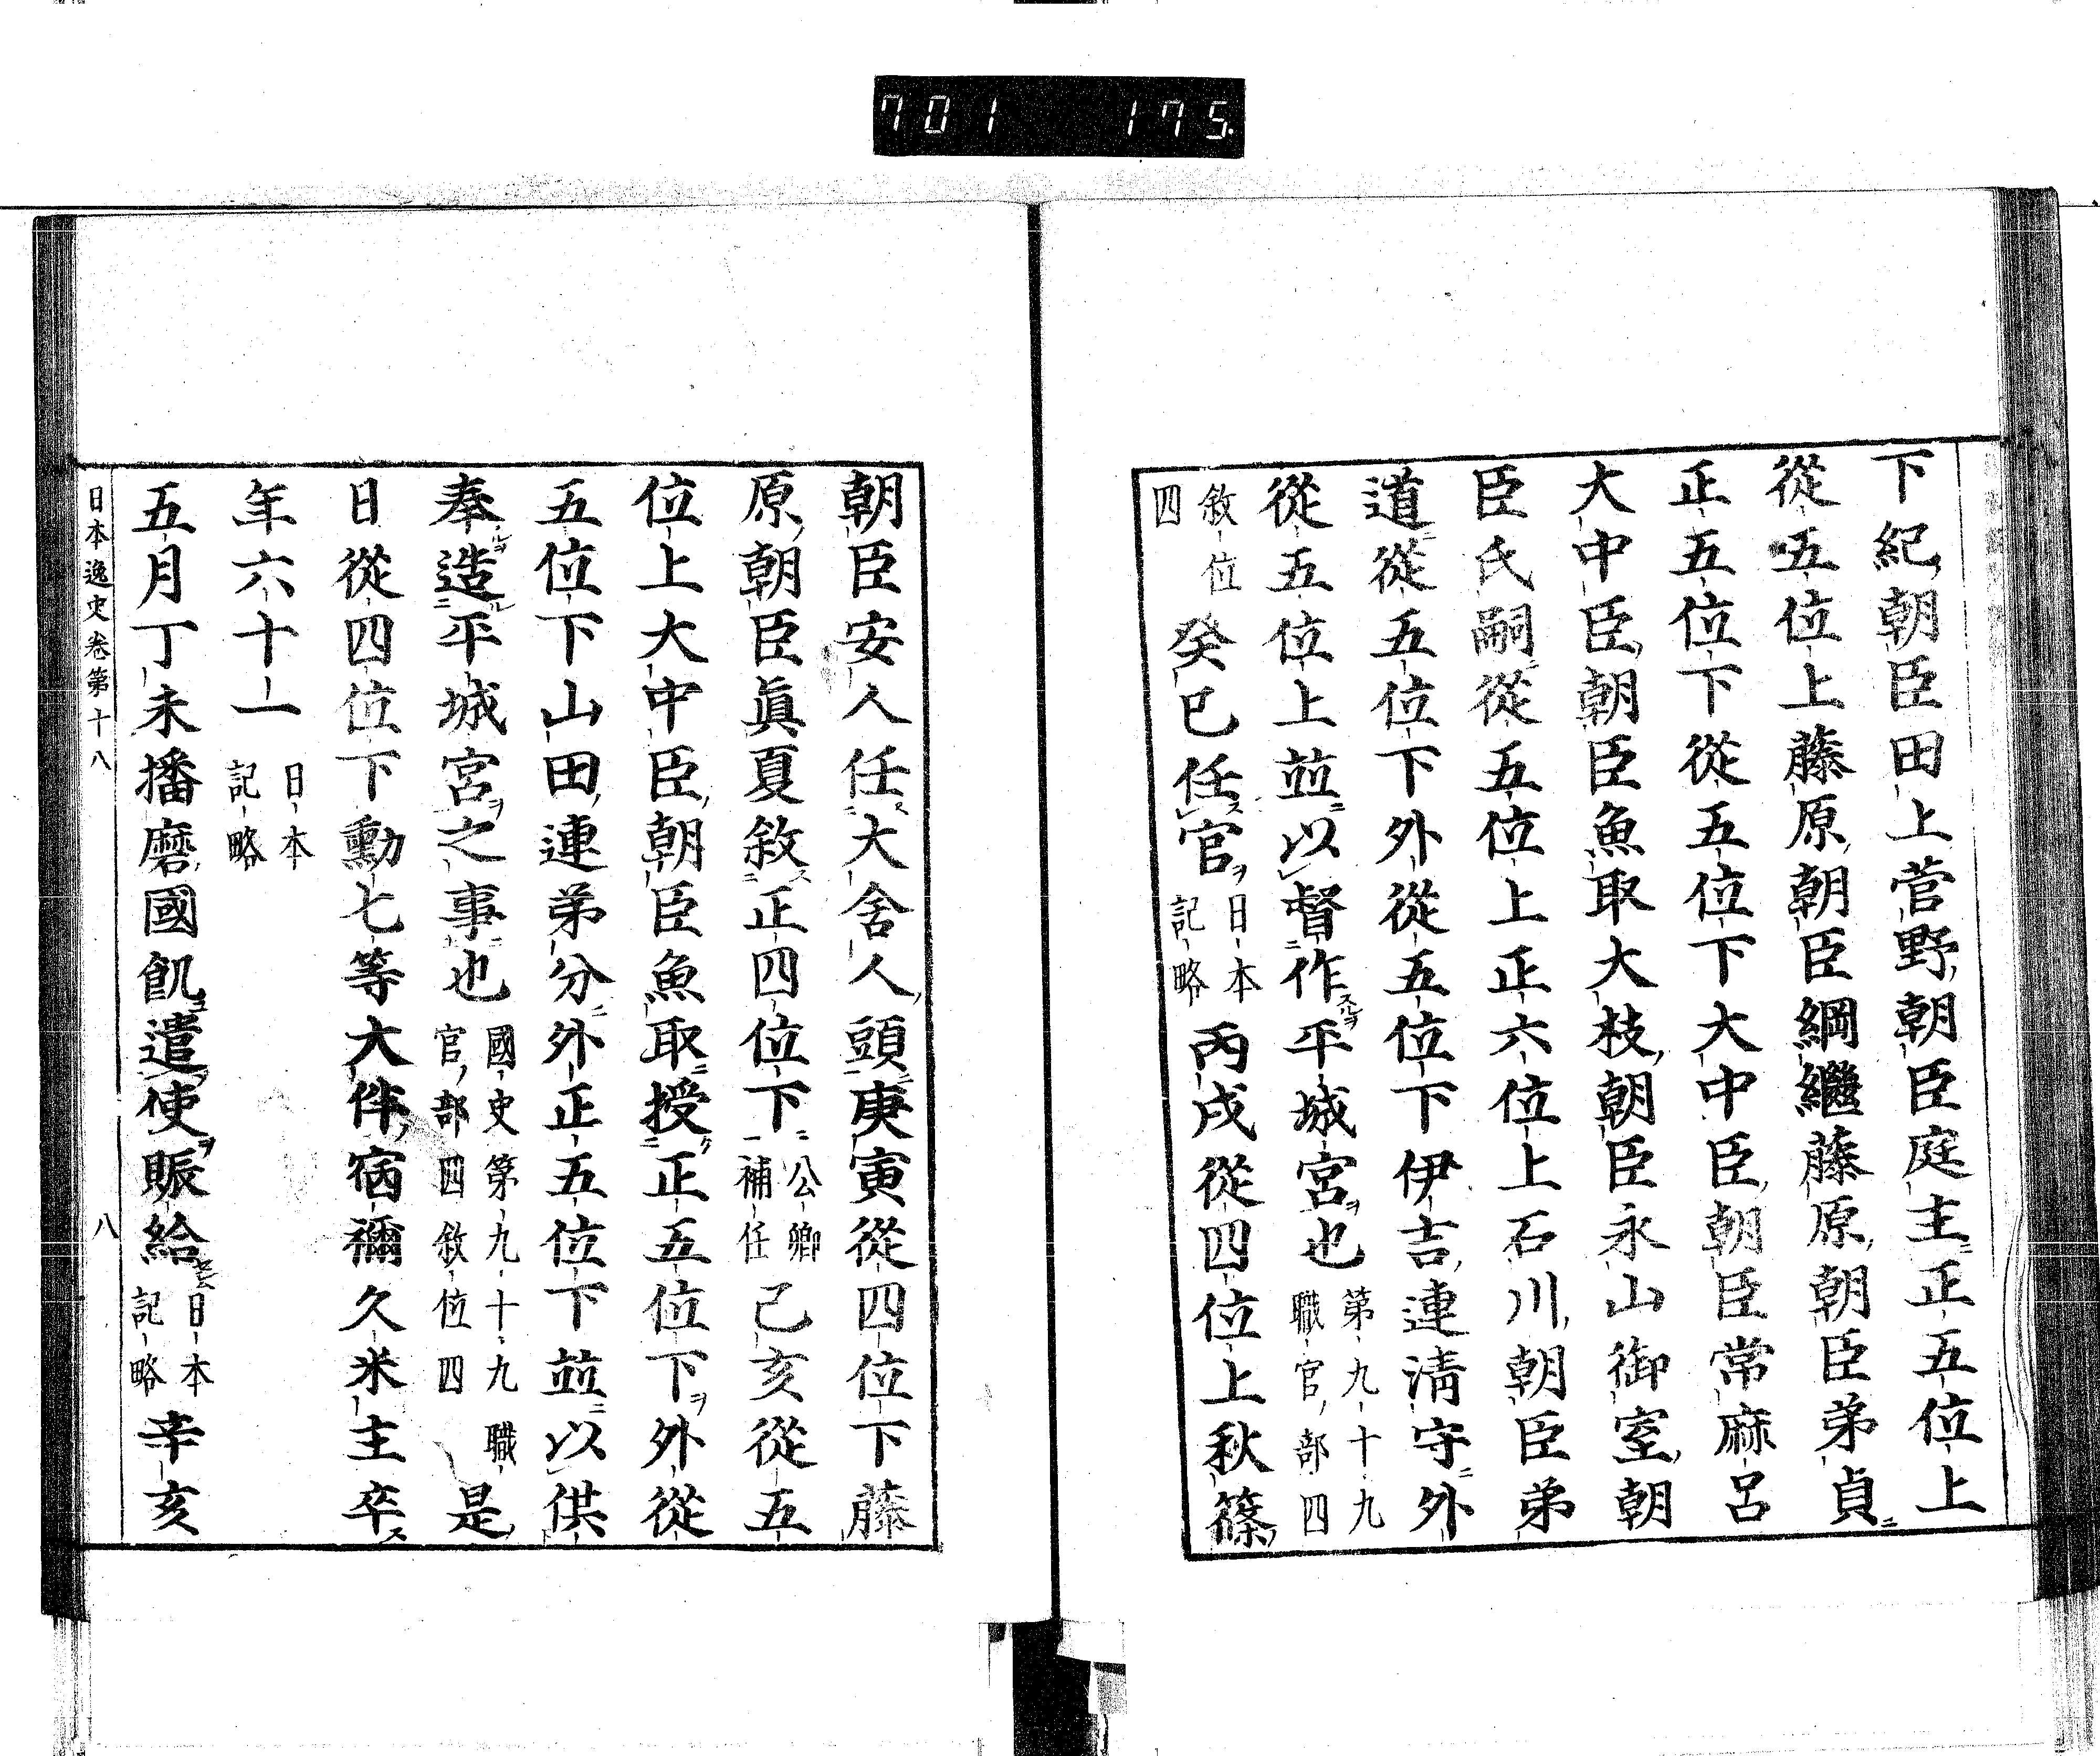 701 175.
下紀朝臣田上菅野朝臣庭主正五位上
從五位上藤原朝臣綱繼藤原朝臣弟貞
正五位下從五位下大中臣朝臣常麻呂
大中臣朝臣魚取大枝朝臣永山御室朝
臣氏嗣從五位上正六位上石川朝臣弟
道從五位下外從五位下伊吉連淸守外
從五位上並以督作平城宮也第九十九職官部四
敘位四癸巳任官日本記略丙戌從四位上秋篠
朝臣安人任大舍人頭庚寅從四位下藤
原朝臣眞夏敘正四位下公卿補任己亥從五
位上大中臣朝臣魚取授正五位下外從
五位下山田連弟分外正五位下並以供
奉造平城宮之事也國史第九十九職官部四敘位四是
日從四位下勳七等大伴宿禰久米主卒
年六十一日本記略
五月丁未播磨國飢遣使賑給日本記略辛亥
日本逸史卷第十八 八